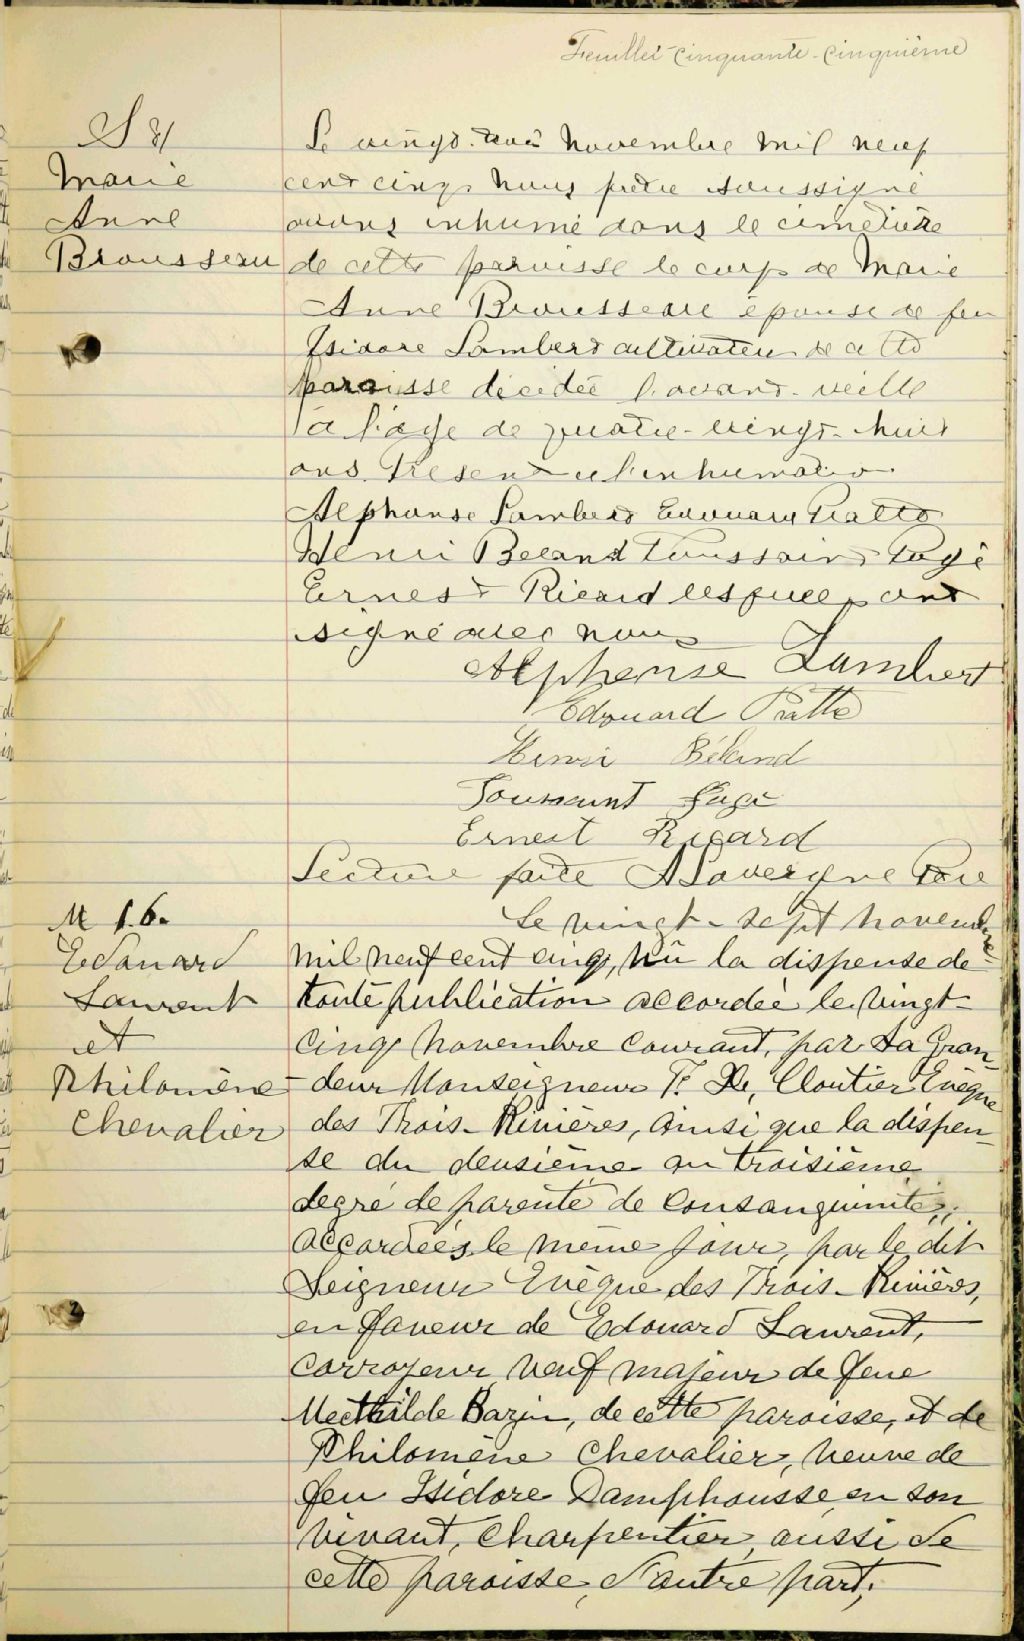 Feuillet cinquante-cinquième
S 81
Marie
Anne
Brousseau
Le vingt-trois novembre mil neuf
cent cinq nous prêtre soussigné
avons inhumé dans le cimetière
de cette paroisse le corps de Marie
Anne Brousseau épouse de feu
Isidore Lambert cultivateur de cette
paroisse décédée l'avant-veille
à l'âge de quatre-vingt-huit
ans. Présent à l'inhumation
Alphonse Lambert Edouard Pratte
Henri Beland Toussaint Pagé
Ernest Ricard lesquels ont
signé avec nous
Alphonse Lambert
Edouard Pratte
Henri Béland
Toussaint Pagé
Ernest Ricard
Lecture faite A Lavergne Ptre
M 16.
Edouard
Laurent
et
Philomène
Chevalier
Le vingt-sept novembre
mil neuf cent cinq, vû la dispense de
toute publication accordée le vingt-
cinq novembre courant, par Sa Gran-
deur Monseigneur F. X. Cloutier Evêque
des Trois-Rivières, ainsi que la dispen-
se du deusième au troisième
degré de parenté de consanguinité,
accordées le même jour, par le dit
Seigneur Evêque des Trois-Rivières,
en faveur de Edouard Laurent,
corroyeur veuf majeur de feue
Mecthilde Bazin, de cette paroisse, et de
Philomène Chevalier, veuve de
feu Isidore Damphousse, en son
vivant, charpentier, aussi de
cette paroisse, d'autre part;